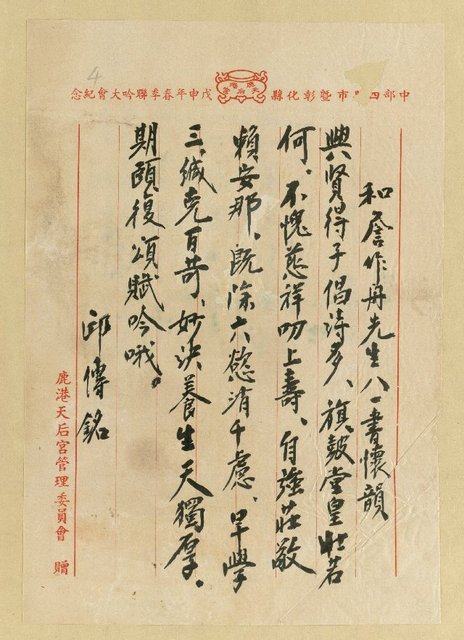 4
中部四市暨彰化縣 戊申年春季聯吟大會紀念
和詹作舟先生八一書懷韻
興賢得子倡詩多、旗皷堂皇壯若
何、不愧慈祥叨上壽、自強莊敬
賴安那、既除六慾消千慮、早學
三緘克百苛、妙決養生天獨厚、
期頤復頌賦吟哦。
邱傳銘
鹿港天后宮管理委員會 贈